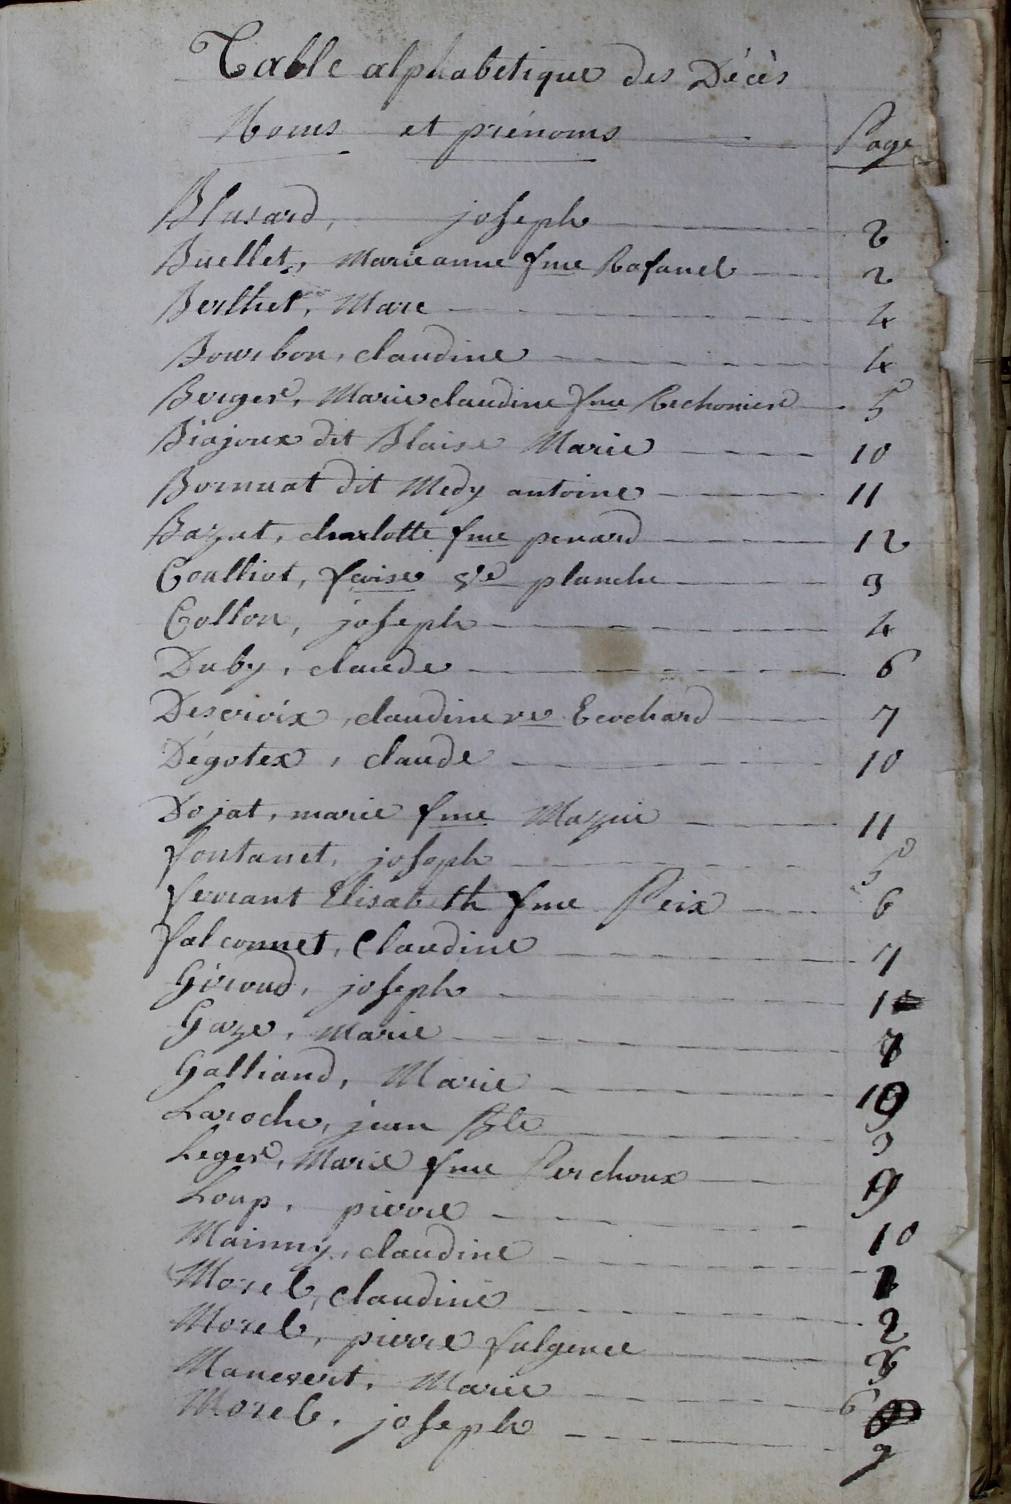 Table alphabétique des Décès
Noms et prénoms Page
Blusard, joseph 2
Buellet, Marieanne fme Rafanel 2
Berthet, Marc 4
Bourbon, claudine 4
Berger, Marie claudine fme Rechonier 5
Biajoux dit Blaise Marie 10
Bornuat dit Medy antoine 11
Bazut, charlotte fme penard 12
Coulliot, fcoise ve planche 3
Collon, joseph 4
Duby, claude 6
Descroix, claudine ve Ecochard 7
Dégotex, claude 10
Dojat, marie fme Mazuie 11
fontanet, joseph 5
ferrant Elisabeth fme Peix 6
falconnet, Claudine 7
Giroud, joseph 1
Gaze, Marie 7
Galliand, Marie 10
Laroche, jean Bte 3
Leger, Marie fme Perchoux 9
Loup, pierre 10
Mainny, claudine 1
Morel, Claudine 2
Morel, pierre fulgence
Manevert, Marie 6
Morel, joseph 9